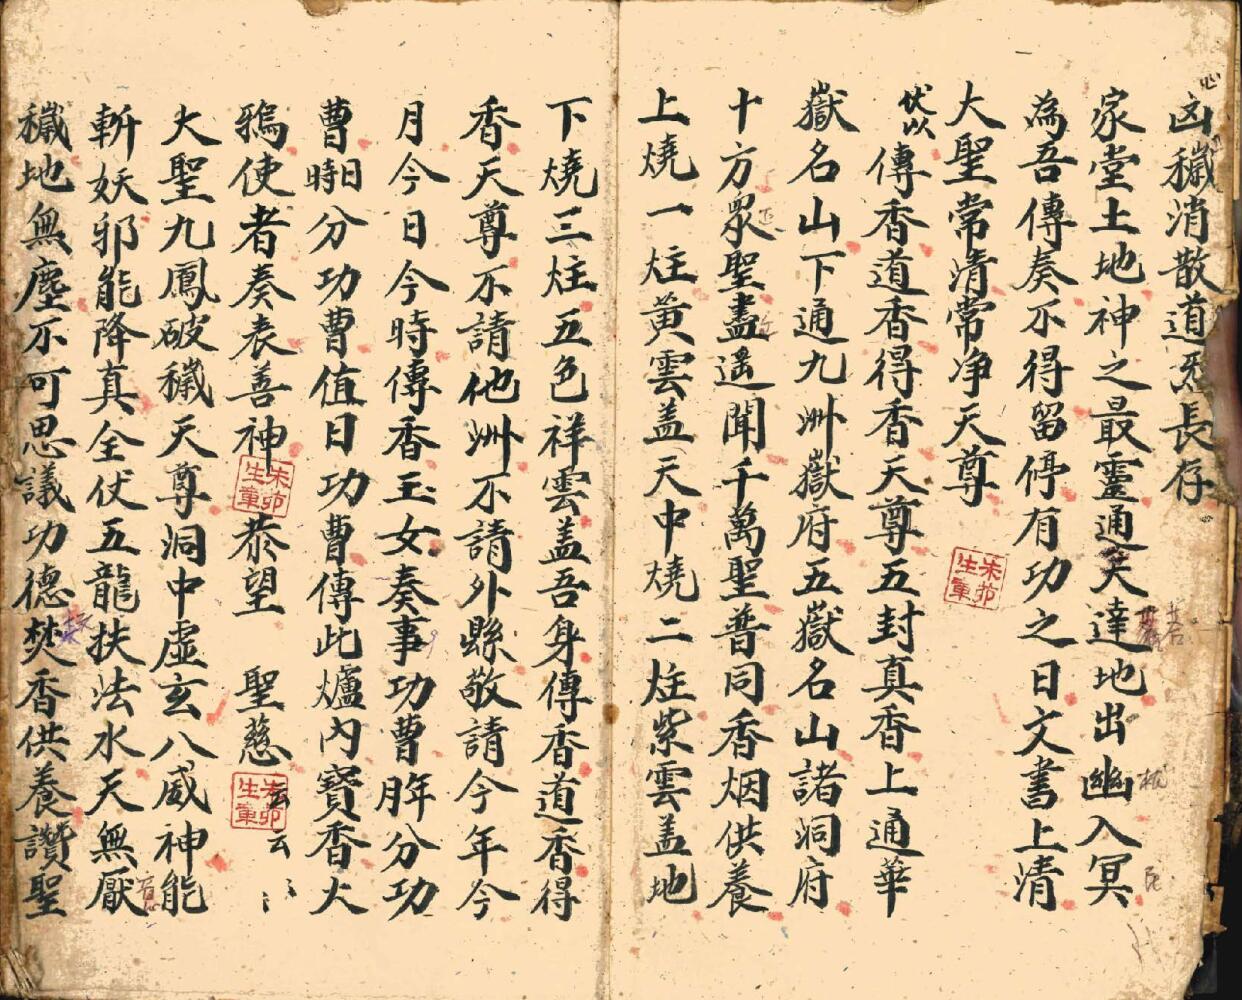 凶穢消散道炁長存
家堂土地神之最靈通天達地出幽入冥
為吾傳奏不得留停有功之日文書上清
大聖常清常净天尊
伏以
傳香道香得香天尊五封真香上通華
嶽名山下通九州嶽府五嶽名山諸洞府
十方眾聖盡遙聞千萬聖普同香烟供養
上燒一炷黃雲盖天中燒二炷紫雲盖地
下燒三炷五色祥雲盖吾身傳香道香得
香天尊不請他州不請外縣敬請今年今
月今日今時傳香玉女奏事功曹年分功
曹日時分功曹值日功曹傳此爐內寶香火
鴉使者奏表善神 恭望 聖慈云云
大聖九鳳破穢天尊洞中虛玄八威神能
斬妖邪能降真全伏五龍扶法水天無厭
穢地無塵不可思議功德焚香供養讚聖